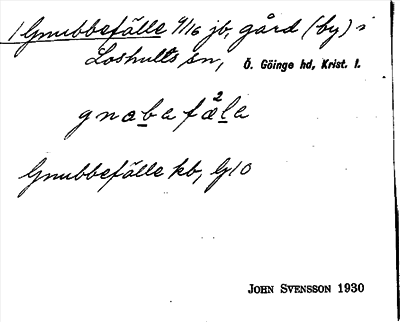 1 Gnubbefälle 9/16 jb, gård (by) i
Loshults sn, Ö. Göinge hd, Krist. l.
gnabafä²la
Gnubbefälle kb, G10
JOHN SVENSSON 1930